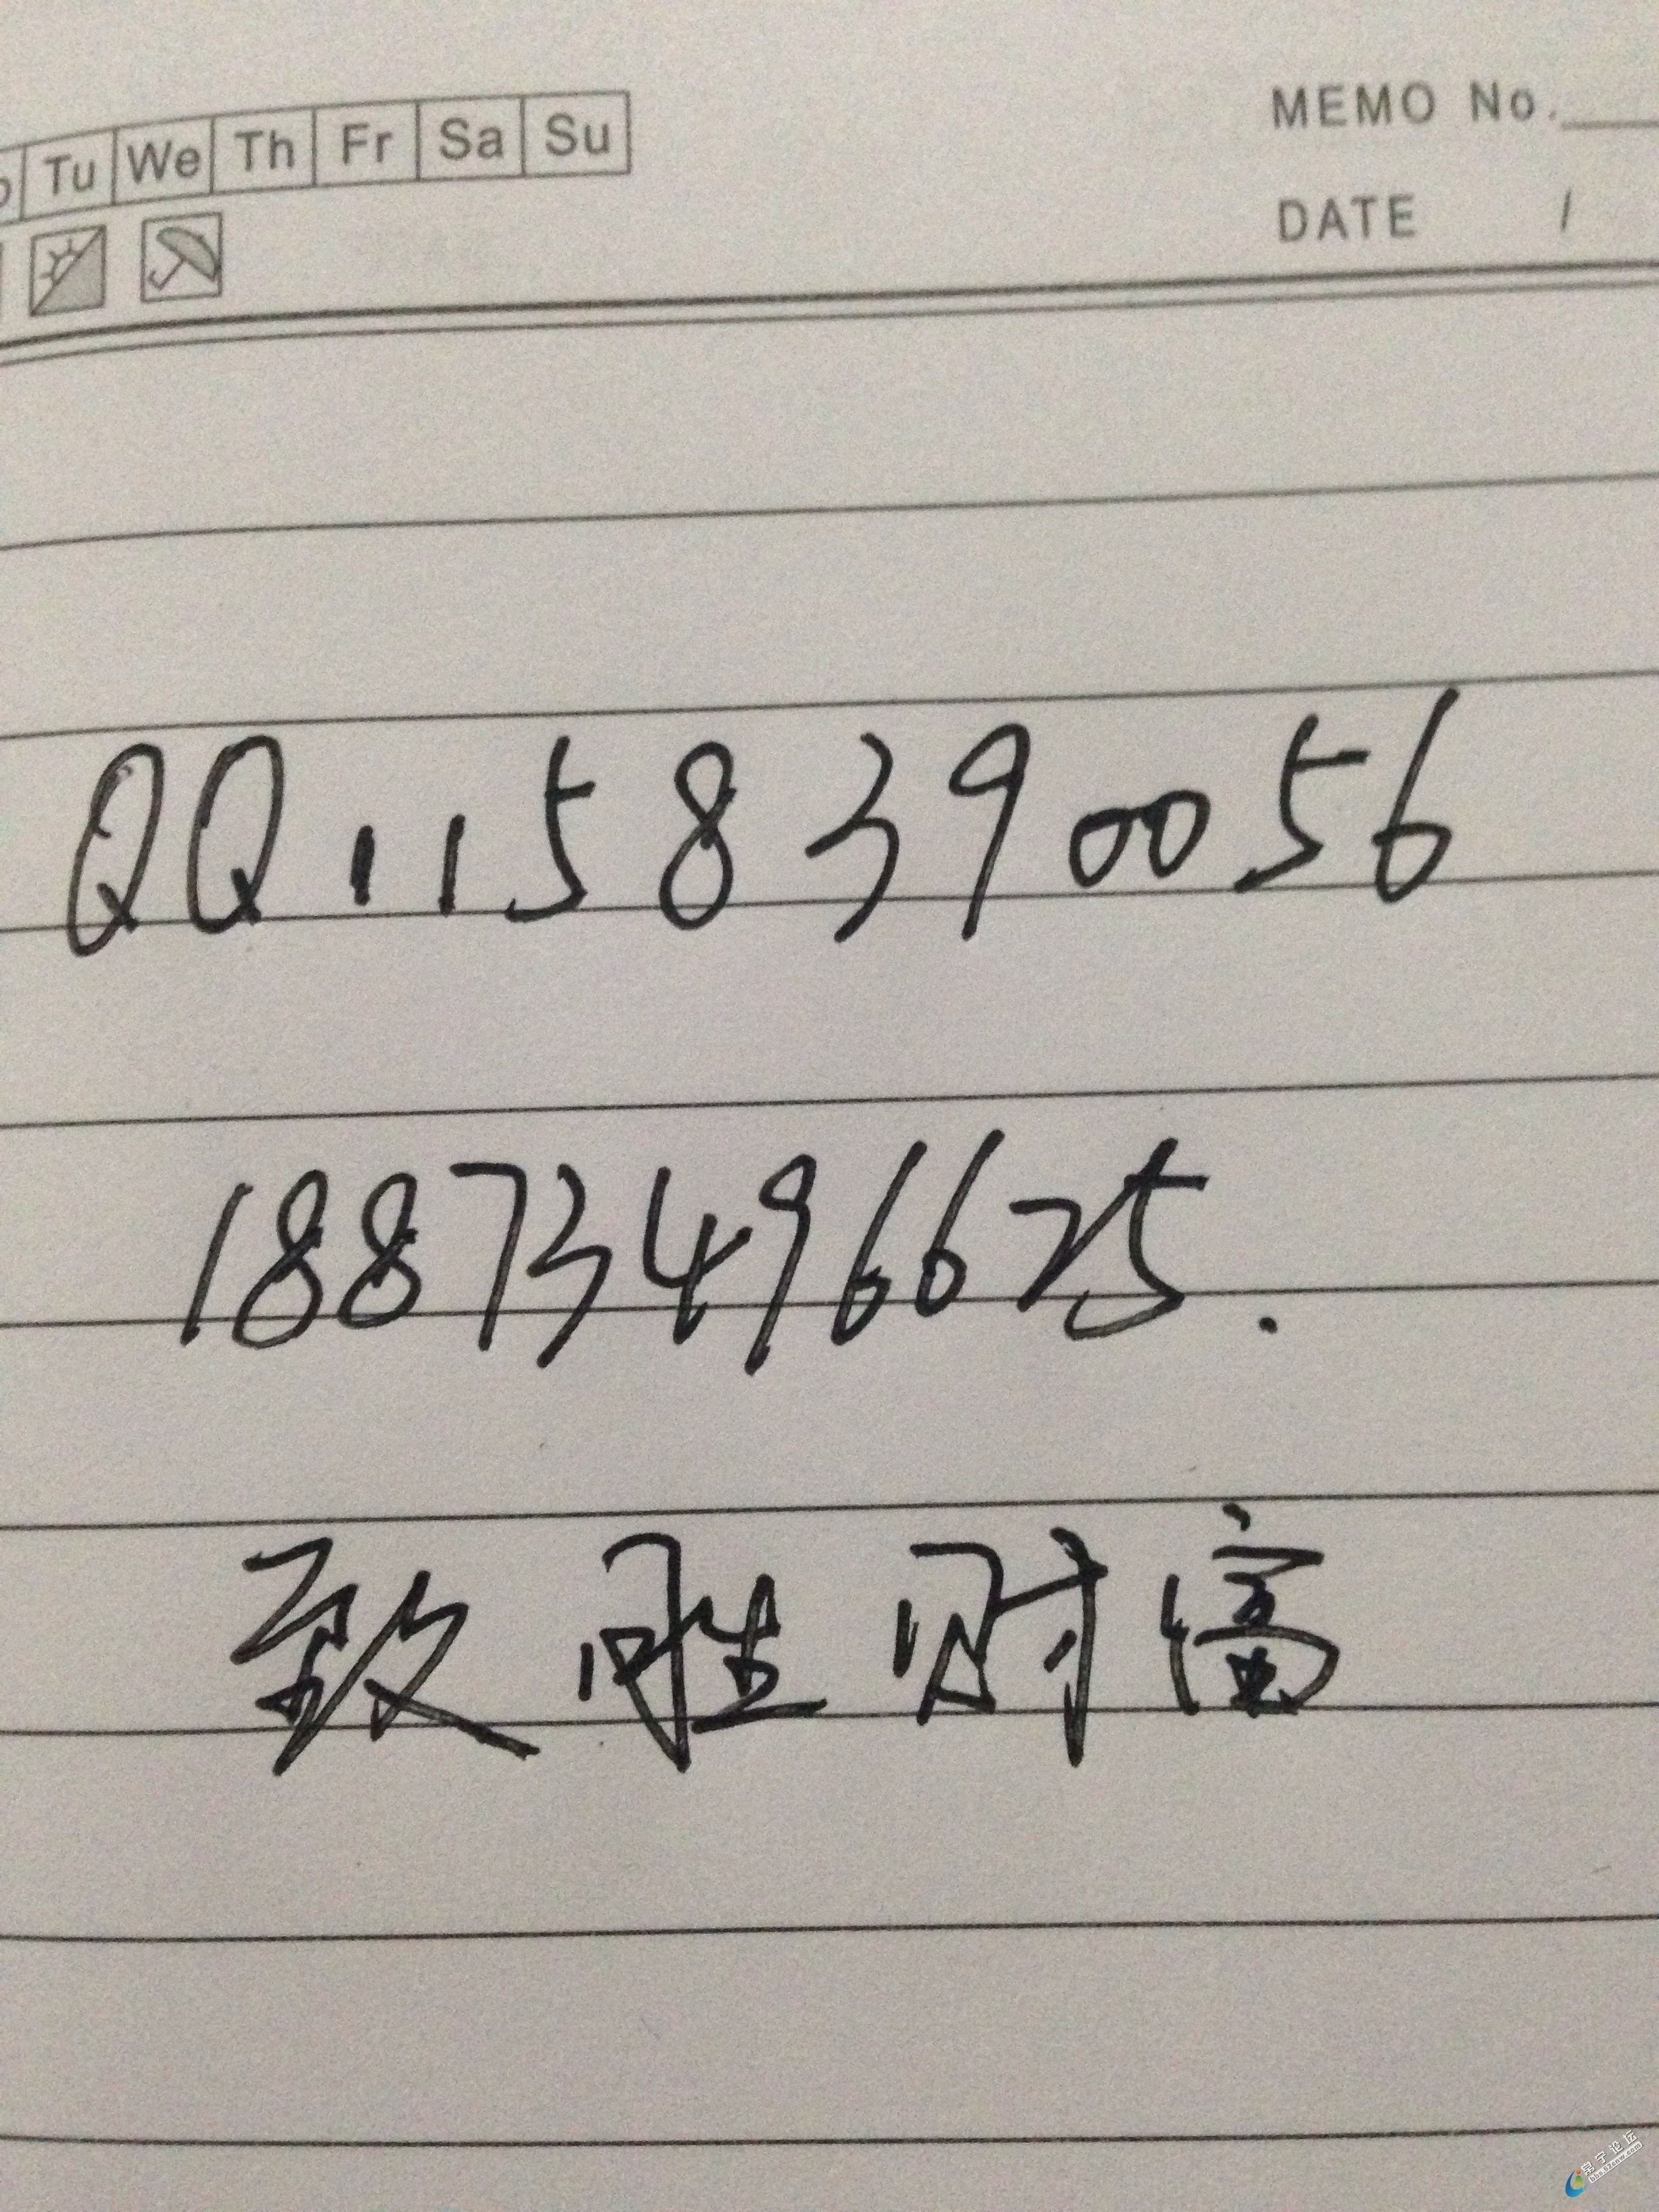 Tu We Th Fr Sa Su
MEMO No.
DATE /
QQ1158390056
18873496625.
致胜财富
常宁论坛